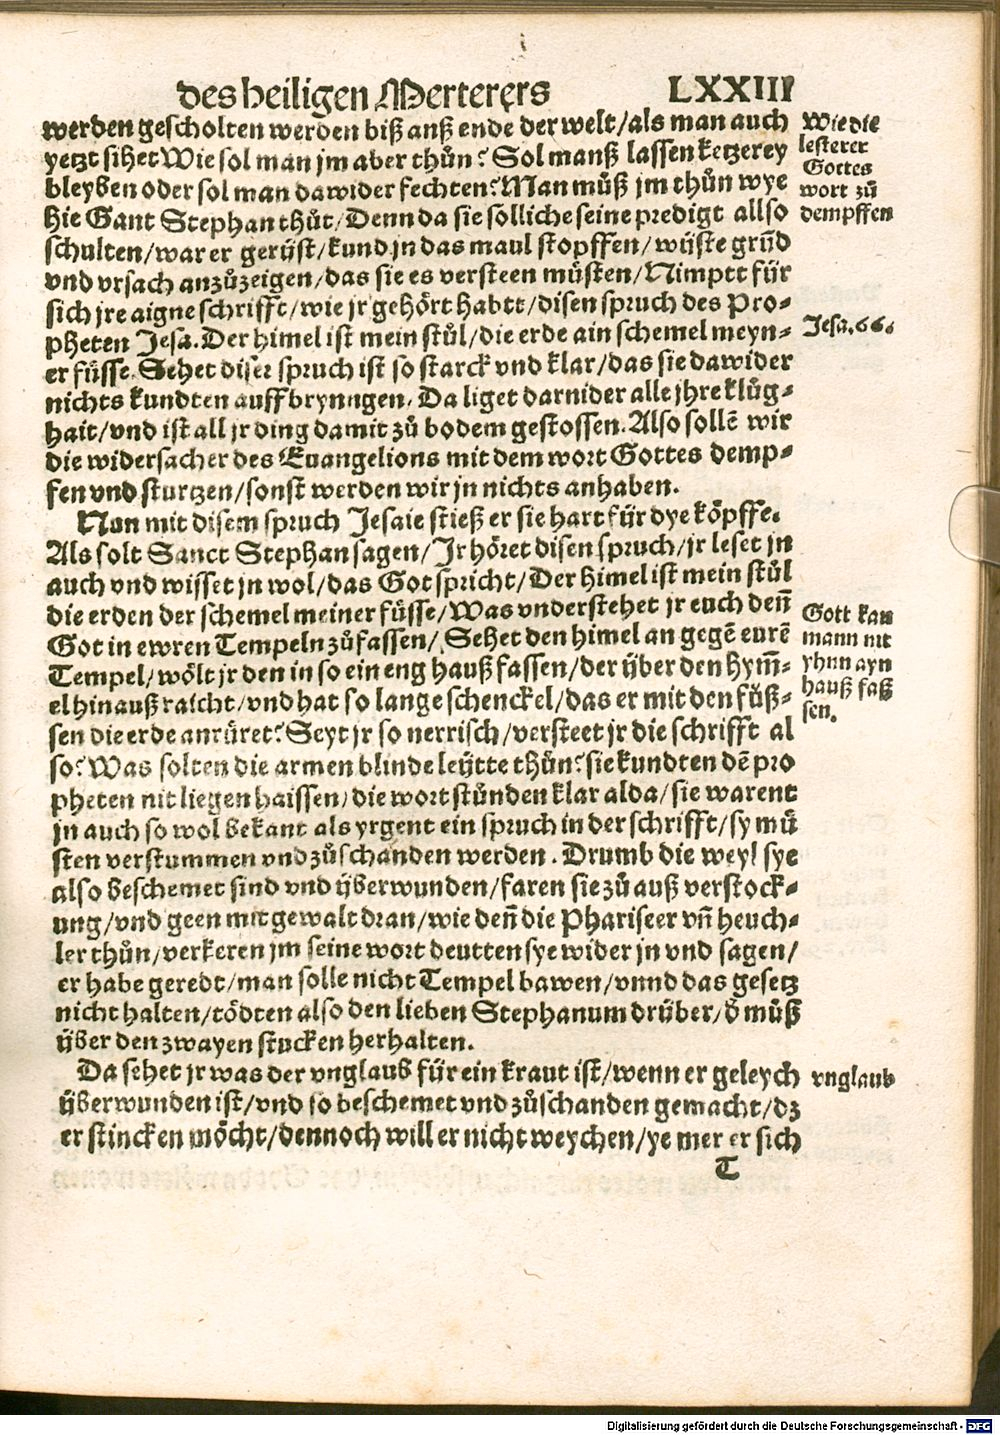 des heiligen Merterers LXXIII
werden gescholten werden biß anß ende der welt/als man auch
yetzt sihet Wie sol man jm aber thůn? Sol manß lassen ketzerey
bleyben oder sol man dawider fechten? Man můß jm thůn wye
hie Sant Stephan thůt/Denn da sie solliche seine predigt allso
schulten/war er gerüst/kund jn das maul stopffen/wüste grūd
vnd vrsach anzůzeigen/das sie es versteen můsten/Nimptt für
sich jre aigne schrifft/wie jr gehört habtt/disen spruch des Pro-
pheten Jesa. Der himel ist mein stůl/die erde ain schemel meyn-
er füsse. Sehet diser spruch ist so starck vnd klar/das sie dawider
nichts kundten auffbrynngen. Da liget darnider alle jhre klůg-
hait/vnd ist all jr ding damit zů bodem gestossen. Also sollē wir
die widersacher des Euangelions mit dem wort Gottes demp-
fen vnd sturtzen/sonst werden wir jn nichts anhaben.
Nun mit disem spruch Jesaie stieß er sie hart für dye köpffe.
Als solt Sanct Stephan sagen/Jr höret disen spruch/jr leset jn
auch vnd wisset jn wol/das Got spricht/Der himel ist mein stůl
die erden der schemel meiner füsse/Was vnderstehet jr euch den̄
Got in ewren Tempeln zů fassen/Sehet den himel an gegē eurē
Tempel/wölt jr den in so ein eng hauß fassen/der über den hym̄-
el hinauß raicht/vnd hat so lange schenckel/das er mit den füß-
sen die erde anrüret? Seyt jr so nerrisch/versteet jr die schrifft al
so? Was solten die armen blinde leütte thůn? sie kundten dē pro
pheten nit liegen haissen/die wort stůnden klar alda/sie warent
jn auch so wol bekant als yrgent ein spruch in der schrifft/sy mů
sten verstummen vnd zůschanden werden. Drumb die weyl sye
also beschemet sind vnd überwunden/faren sie zů auß verstock-
ung/vnd geen mit gewalt dran/wie den̄ die Phariseer vn̄ heuch-
ler thůn/verkeren jm seine wort deutten sye wider jn vnd sagen/
er habe geredt/man solle nicht Tempel bawen/vnnd das gesetz
nicht halten/tödten also den lieben Stephanum drüber/d̄ můß
über den zwayen stucken herhalten.
Da sehet jr was der vnglaub für ein kraut ist/wenn er geleych
überwunden ist/vnd so beschemet vnd zůschanden gemacht/dz
er stincken möcht/dennoch will er nicht weychen/ye mer er sich
T
Wie die
lesterer
Gottes
wort zů
dempffen
Jesa.66.
Gott kan
mann nit
yhnn ayn
hauß faß
sen.
vnglaub
Digitalisierung gefördert durch die Deutsche Forschungsgemeinschaft - DFG